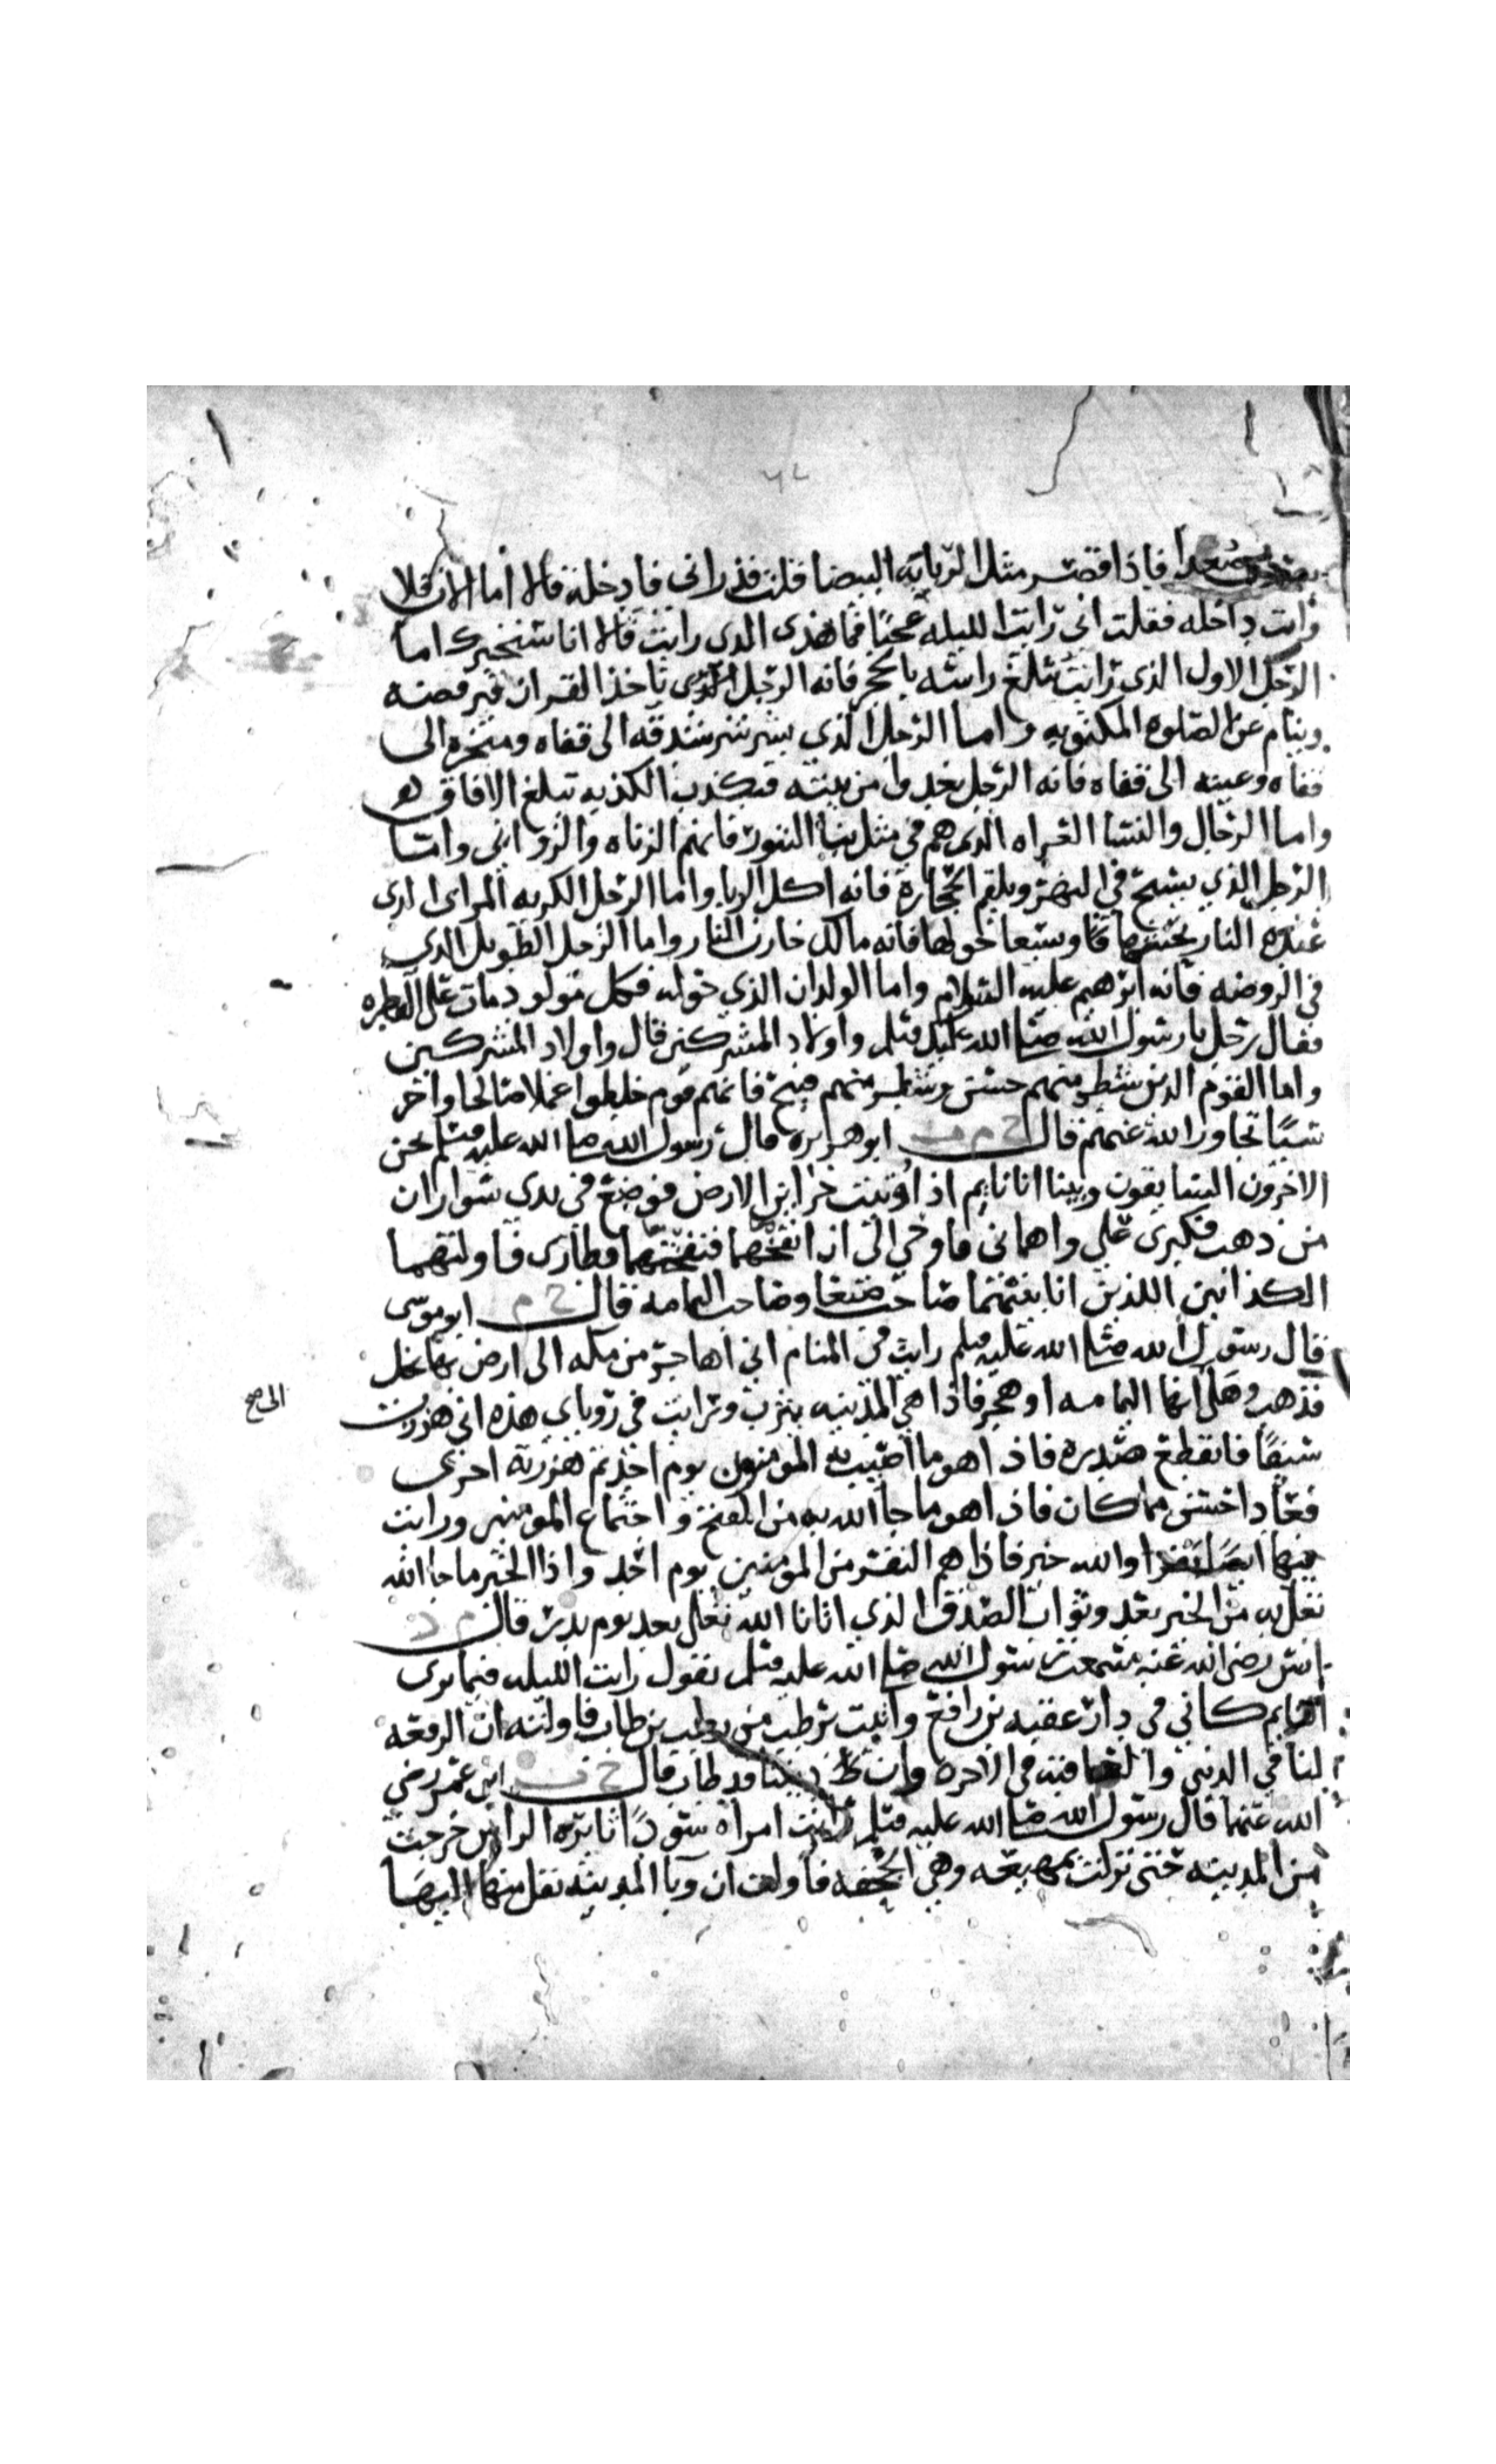 بصري صعدا فاذا قصر مثل الربابه البيضا قلت فذراني فادخله قالا اما الان فلا
وانت داخله فقلت اني رايت الليله عجبا فما هذى الدي رايت قالا انا سنخبرك اما
الرجل الاول الذي رايت يثلغ راسه بالحجر فانه الرجل الذي ياخذ القران فيرفضه
وينام عن الصلوه المكتوبه واما الرجل الذي يشرشر شدقه الى قفاه ومنخره الى
قفاه وعينه الى قفاه فانه الرجل يغدوا من بيته فيكذب الكذبه تبلغ الافاق
واما الرجال والنسا العراه الذي هم في مثل بنا التنور فانهم الزناه والزواني واما
الرجل الذي يسبح في النهر ويلقم الحجارة فانه اكل الربا واما الرجل الكريه المراى الذى
عنده النار يحشها ويسعا حولها فانه مالك خازن النار واما الرجل الطويل الدي
في الروضه فانه ابرهيم عليه السلام واما الولدان الذي حوله فكل مولود مات على الفطره
فقال رجل يا رسول الله صلى الله عليه وسلم واولاد المشركين قال واولاد المشركين
واما القوم الدين شطر منهم حسن وشطر منهم قبيح فانهم قوم خلطوا عملا صالحا واخر
سيئا تجاوز الله عنهم قال خ م ابو هريره قال رسول الله صلى الله عليه وسلم نحن
الاخرون السابقون وبينا انا نايم اذ اوتيت خزاين الارض فوضع في يدى سواران
من ذهب فكبرى علي واهماني فاوحي الي ان انفخهما فنفختهما فطارى فاولتهما
الكذابين اللذين انا بينهما صاحب صنعا وصاحب اليمامه قال خ م ابو موسى
قال رسول الله صلى الله عليه وسلم رايت في المنام اني اهاجر من مكه الى ارض بها نخل
فذهب وهلى انها اليمامه او هجر فاذا هي المدينه يثرب ورايت في روياي هذه اني هززت
سيفا فانقطع صدره فاذا هو ما اصيب به المومنون يوم احد ثم هززته اخرى
فعاد احسن مما كان فاذا هو ما جا الله به من الفتح واجتماع المومنين ورايت
فيها ايضا بقرا والله خير فاذا هم النفر من المومنين يوم احد واذا الخير ما جا الله
تعلى به من الخير بعد وثواب الصدق الذي اتانا الله تعلى بعد يوم بدر قال م د
انس رضي الله عنه سمعت رسول الله صلى الله عليه وسلم يقول رايت الليله فيما يرى
النايم كاني في دار عقبه بن رافع واتيت برطب من رطب بن طاب فاولته ان الرفعه
لنا في الدنيى والعاقبه في الاخره وان ديننا قد طاب قال خ ت ابن عمر رضي
الله عنهما قال رسول الله صلى الله عليه وسلم رايت امراه سودا ثايره الراس خرجت
من المدينه حتى نزلت بمهيعه وهي الجحفه فاولت ان وبا المدينه نقل منها اليها